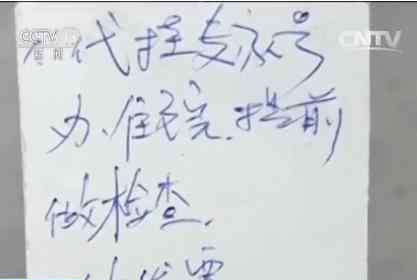 CCTV 新闻
CNTV
代挂专家号
办住院.提前
做检查.